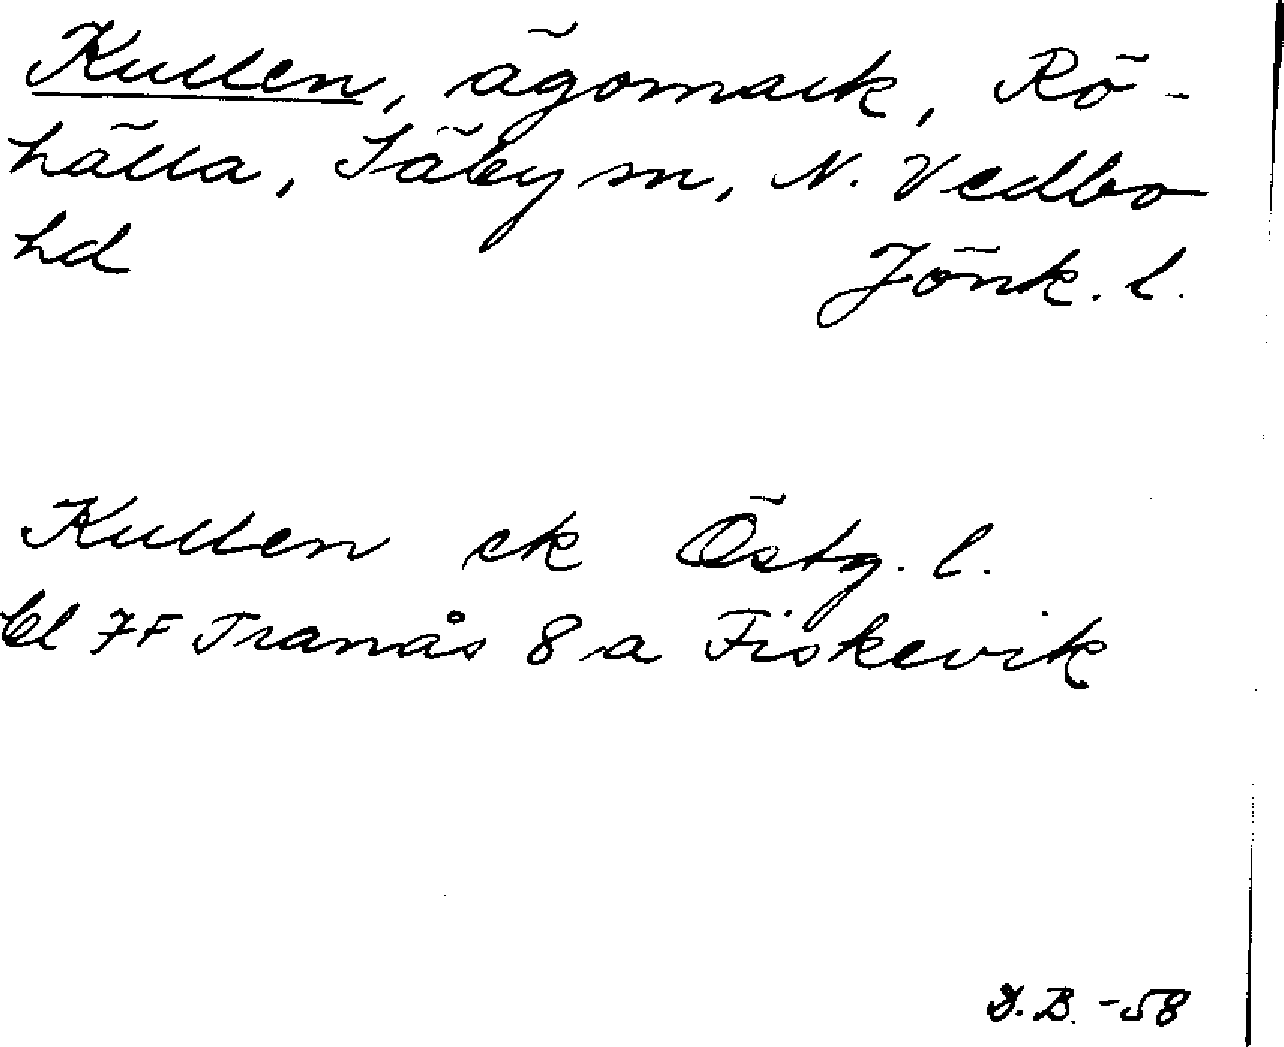 Kullen, ägomark, Rö-
hälla, Säby sn, N. Vedbo
hd Jönk. l.
Kullen ek Östg. l.
bl 7F Tranås 8 a Fiskevik
B. -58